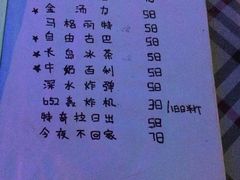 ★ 金汤力 58
马格丽特 58
★ 自由古巴 58
★ 长岛冰茶 58
★ 牛奶百利 58
深水炸弹 58
b52轰炸机 38/
特奇拉日出 58
今夜不回家 78